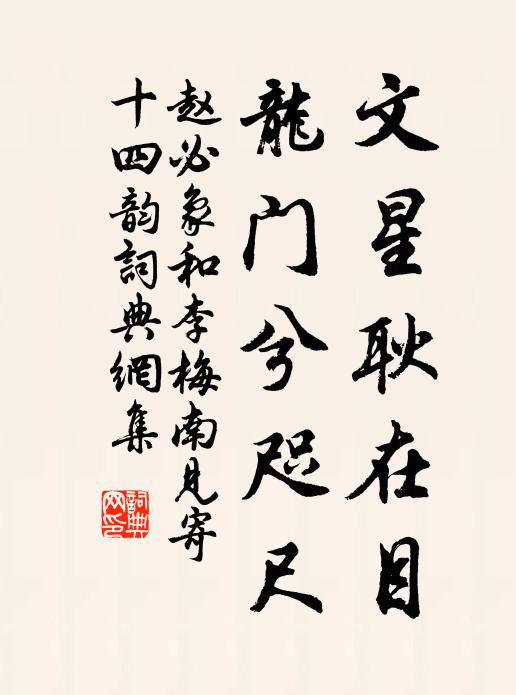 文星耿在目
龍门兮咫尺
赵必象和李梅南見寄
十四韵詞典網集
詞典
网印